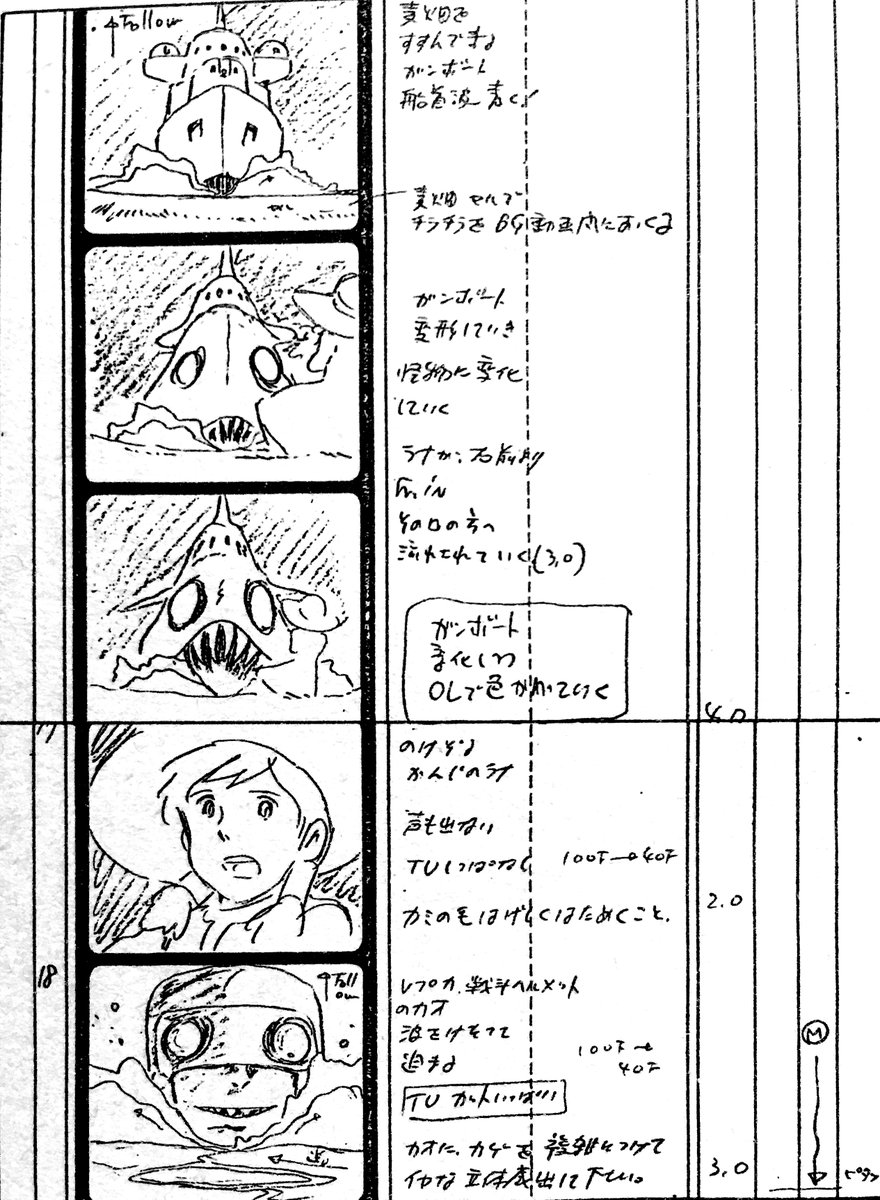 Follow
麦畑を
すすんでくる
ガンボート
船首波 高く!
麦畑 セルで
ガンボート
変形していき
怪物に変化
していく
ラナが、右前より
Fr. in
その口の方へ
流されていく(3,0)
ガンボート
変化しつつ
OLで色がわっていく
4.0
17
のけぞる
かんじのラナ
声も出ない
TU 100F→40F
カミの毛はげしくはためくこと.
2.0
18
Follow
レプカ、戦斗ヘルメット
のカオ
波をけたてて
迫る
100F→
40F
TU カットいっぱい
カオに、カゲを複雑につけて
イヤな立体感出して下さい。
3.0
M